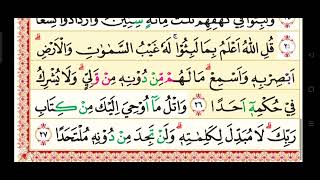 وَلَبِثُوۡا فِىۡ كَهۡفِهِمۡ ثَلٰثَ مِائَةٍ سِنِيۡنَ وَازۡدَادُوۡا تِسۡعًا
۲۵ قُلِ اللّٰهُ اَعۡلَمُ بِمَا لَبِثُوۡا‌ ۚ لَهٗ غَيۡبُ السَّمٰوٰتِ وَالۡاَرۡضِ‌ ؕ
اَبۡصِرۡ بِهٖ وَاَسۡمِعۡ‌ ؕ مَا لَهُمۡ مِّنۡ دُوۡنِهٖ مِنۡ وَّلِىٍّ وَّلَا يُشۡرِكُ
فِىۡ حُكۡمِهٖۤ اَحَدًا ۲۶ وَاتۡلُ مَاۤ اُوۡحِىَ اِلَيۡكَ مِنۡ كِتَابِ
رَبِّكَ ‌ؕ لَا مُبَدِّلَ لِكَلِمٰتِهٖ‌ ۚ وَلَنۡ تَجِدَ مِنۡ دُوۡنِهٖ مُلۡتَحَدًا ۲۷